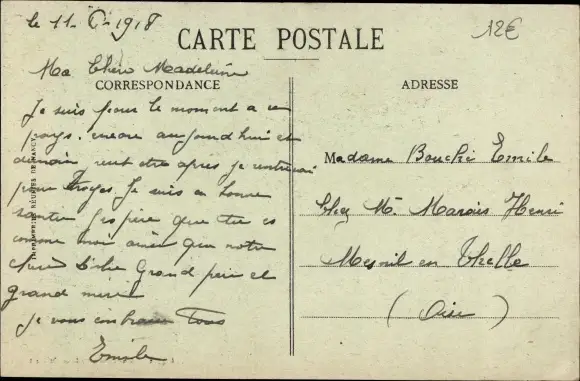 le 11. 1918
12€
CARTE POSTALE
Ma Chère Madeleine
CORRESPONDANCE
Je suis pour le moment a ce
pays. encore aujourd'hui et
demain peut etre apres je
pour Troyes. Je suis en bonne
santer j'espère que tu es
comme moi ainsi que notre
chère Grand père et
grand mère
je vous embrasse Tous
Emile
IMPRIMERIES REUNIES DE NANCY
ADRESSE
Madame Bouché Emile
Chez Mr. Marois Henri
Mesnil en Thelle
(Oise)